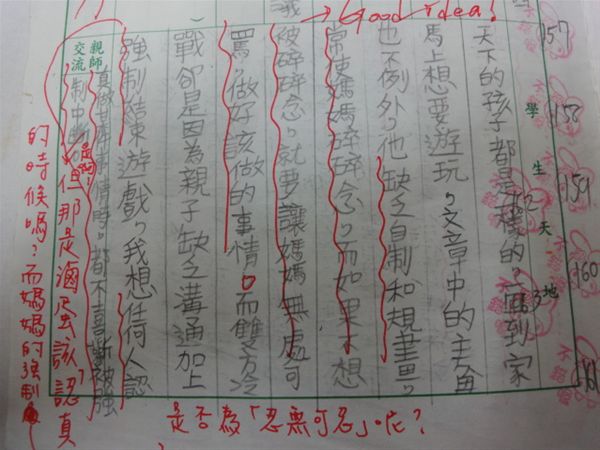 議
→ Good idea!
157
158
159
160
161
學生天地
天下的孩子都是一樣的，一回到家
馬上想要遊玩，文章中的主角
也不例外，他缺乏自制和規畫，
常使媽媽碎碎念，而如果不想
被碎碎念，就要讓媽媽無處可
罵，做好該做的事情。而雙方冷
戰卻是因為親子缺乏溝通加上
強制結束遊戲，我想任何人認
真做某件事情時，都不喜歡被強
制中斷
親師交流
是啊！
但那是滷蛋該「認真
的時候嗎？而媽媽的強制
是否為「忍無可忍」呢？
不錯喔